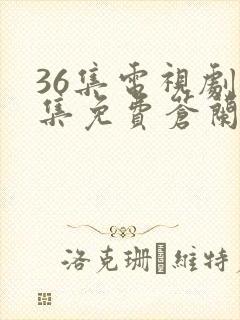 36集電視劇
集免費蒼蘭
洛克珊 維特